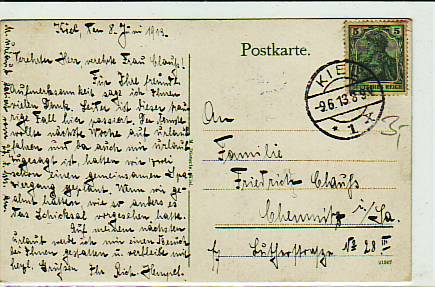 Kiel, den 8. Juni 1913.
Verehrter Herr verehrte Frau Clauß!
Für Ihre freundl.
Aufmerksamkeit sage ich Ihnen
vielen Dank. Leider ist dieser
rige Fall hier passiert. Die
wollte nächste Woche auf Urlaub
fahren und da auch mir Urlaub
zugesagt ist, hatten wir zwei
schon einen gemeinsamen
geplant. Wenn wir
ahnt hätten wie so anders es
das Schicksal vorgesehen hatte.
Auf meinem nächsten
Urlaub werde ich mir einen Besuch
bei Ihnen gestatten u. verbleibe mit
herzl. Grüßen Ihr Rich. Hempel.
Postkarte.
5 5
DEUTSCHES REICH
KIEL
-9.6.13.8-9V.
* 1 *
An
Familie
Friedrich Clauß
Chemnitz i/Sa.
Lutherstraße No 28 III